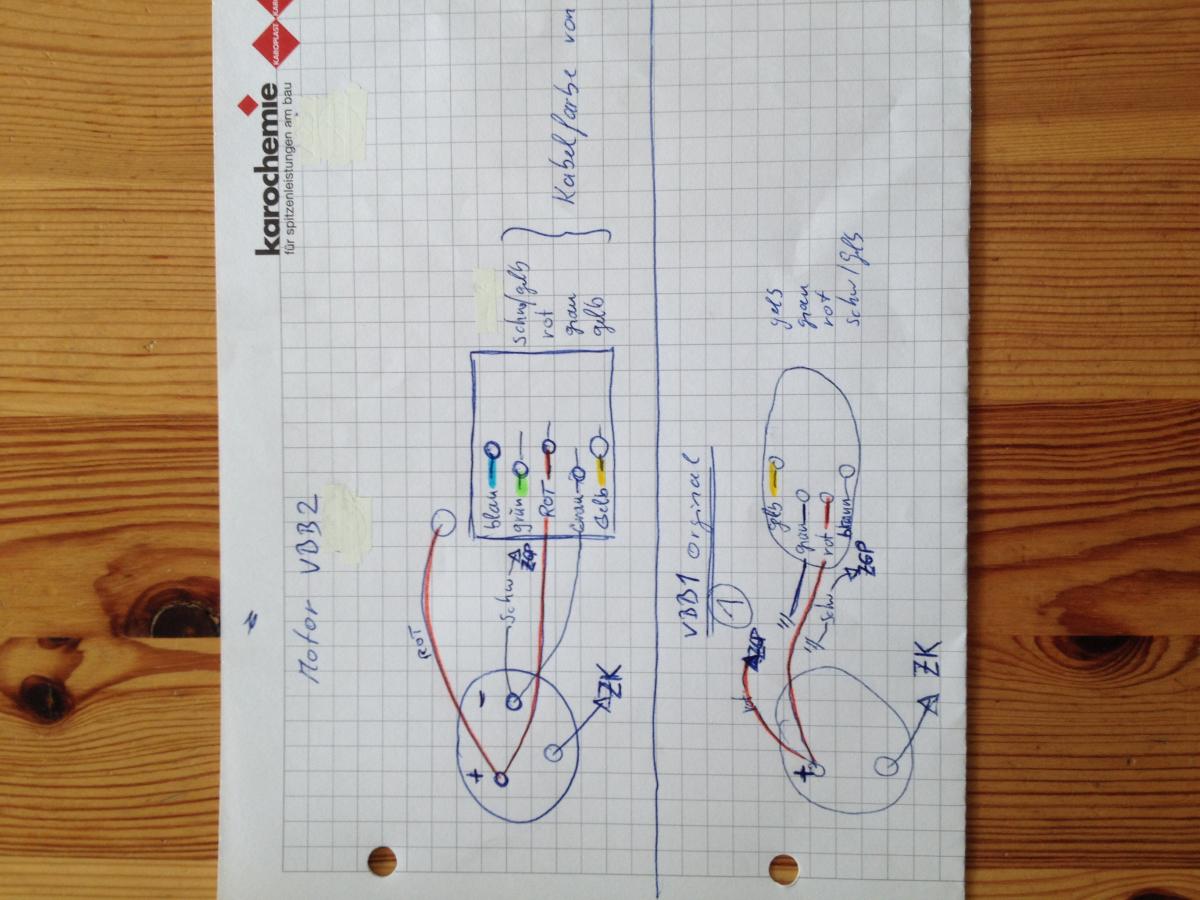 KAROPLAST
karochemie
für spitzenleistungen am bau
Motor VBB2
ROT
blau
grün
ROT
Grau
Gelb
schw/gelb
rot
grau
gelb
Kabelfarbe von
schw
ZGP
+
-
ZK
VBB1 Orginal
1
gelb
grau
rot
braun
gelb
grau
rot
schw/gelb
rot
ZGP
schw
ZGP
+
ZK